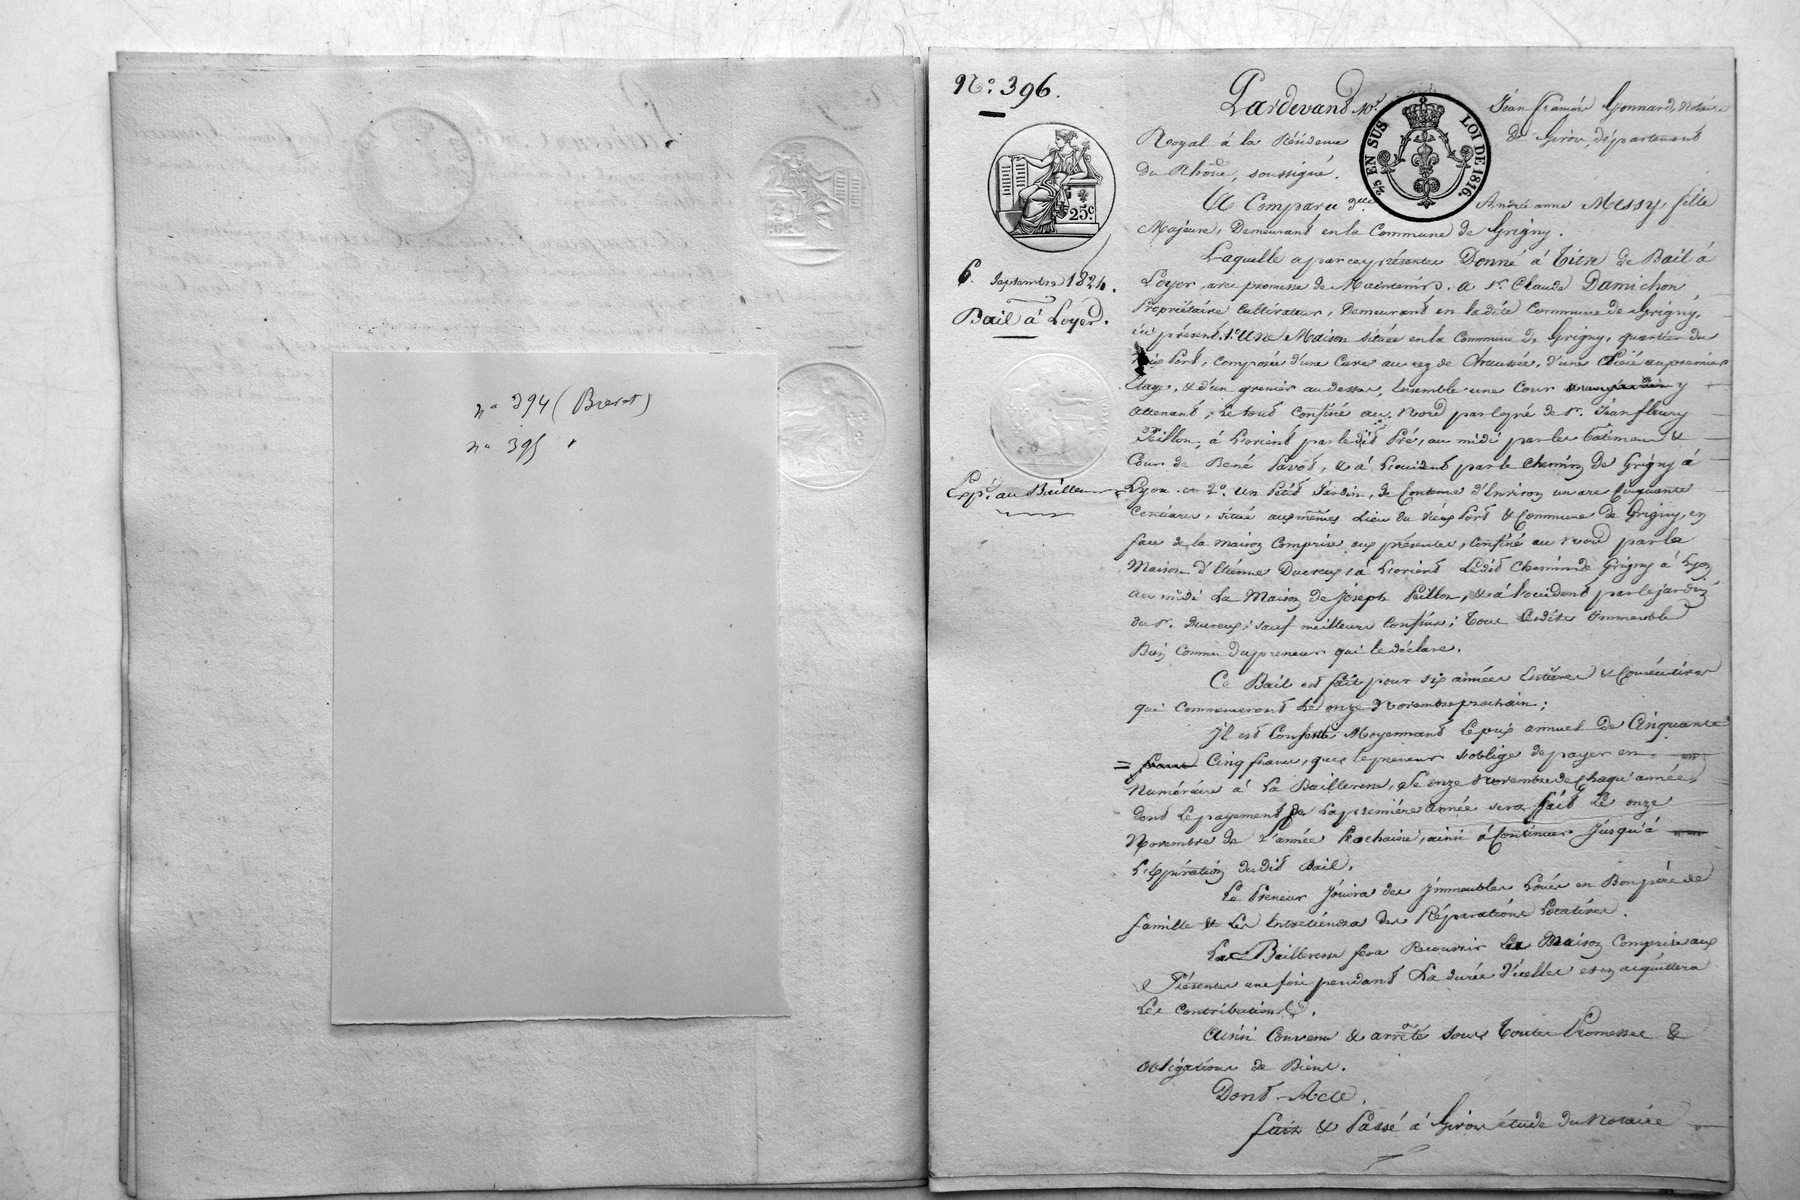 n° 394 (Brevet)
n° 395
N°. 396.
25 EN SUS LOI DE 1816.
25c.
6. Septembre 1824.
Bail à Loyer.
Exp. au Bailleur
Pardevant Mr. Jean françois Gonnard, Notaire
Royal à la Résidence de Givors, département
du Rhône, soussigné.
A Comparu Andréanne Messy fille
Majeure, Demeurant en la Commune de Grigny.
Laquelle a par ces présentes Donné à titre de Bail à
Loyer, avec promesse de Maintenir. a Sr. Claude Damichon
Propriétaire Cultivateur, Demeurant en la dite Commune de Grigny,
ici présent, 1° Une Maison située en la Commune de Grigny, quartier du
Port, Composée d'une Cave au rez de Chaussée, d'une au premier
étage, & d'un grenier au dessus, Ensemble une Cour y
attenant; Le tout Confiné au Nord par le pré de Sr. Jean fleury
Peillon; à L'orient par ledit Pré, au midi par les bâtimens &
Cour de René Pavot, & à L'occident par le chemin de Grigny à
Lyon et 2°. Un Petit Jardin, de Contenue d'Environ un are Cinquante
Centiares, situé au même Lieu du vieux Port & Commune de Grigny, en
face de la maison Comprise aux présentes, Confiné au Nord par la
Maison d'Etienne Ducreux, à L'orient Ledit Chemin de Grigny à Lyon
au midi La Maison de Joseph Peillon, & à l'occident par le jardin
du Sr. Ducreux; sauf meilleurs Confins; Tout Lesdits Immeuble
Bien Connu du preneur qui le déclare.
Ce Bail est fait pour six années Entières & Consécutives
qui Commenceront Le onze Novembre prochain;
Il est Consenti Moyennant Le prix annuel de Cinquante
Cinq francs, que le preneur s'oblige de payer en
Numéraire à La Bailleresse, Le onze Novembre de Chaqu'année,
dont Le payement de La première année sera fait Le onze
Novembre de L'année Prochaine, ainsi à Continuer Jusqu'à
L'Expiration dudit Bail.
Le Preneur Jouira des Immeubles Loués en Bon père de
famille & Les Entretiendra des Réparations Locatives.
La Bailleresse fera Recouvrir La Maison Comprise aux
Présentes une fois pendant La durée d'icelles et en acquittera
Les Contributions.
Ainsi Convenu & arrêté sous Toutes Promesses &
obligations de Biens.
Dont Acte.
fait & Passé à Givors étude du Notaire